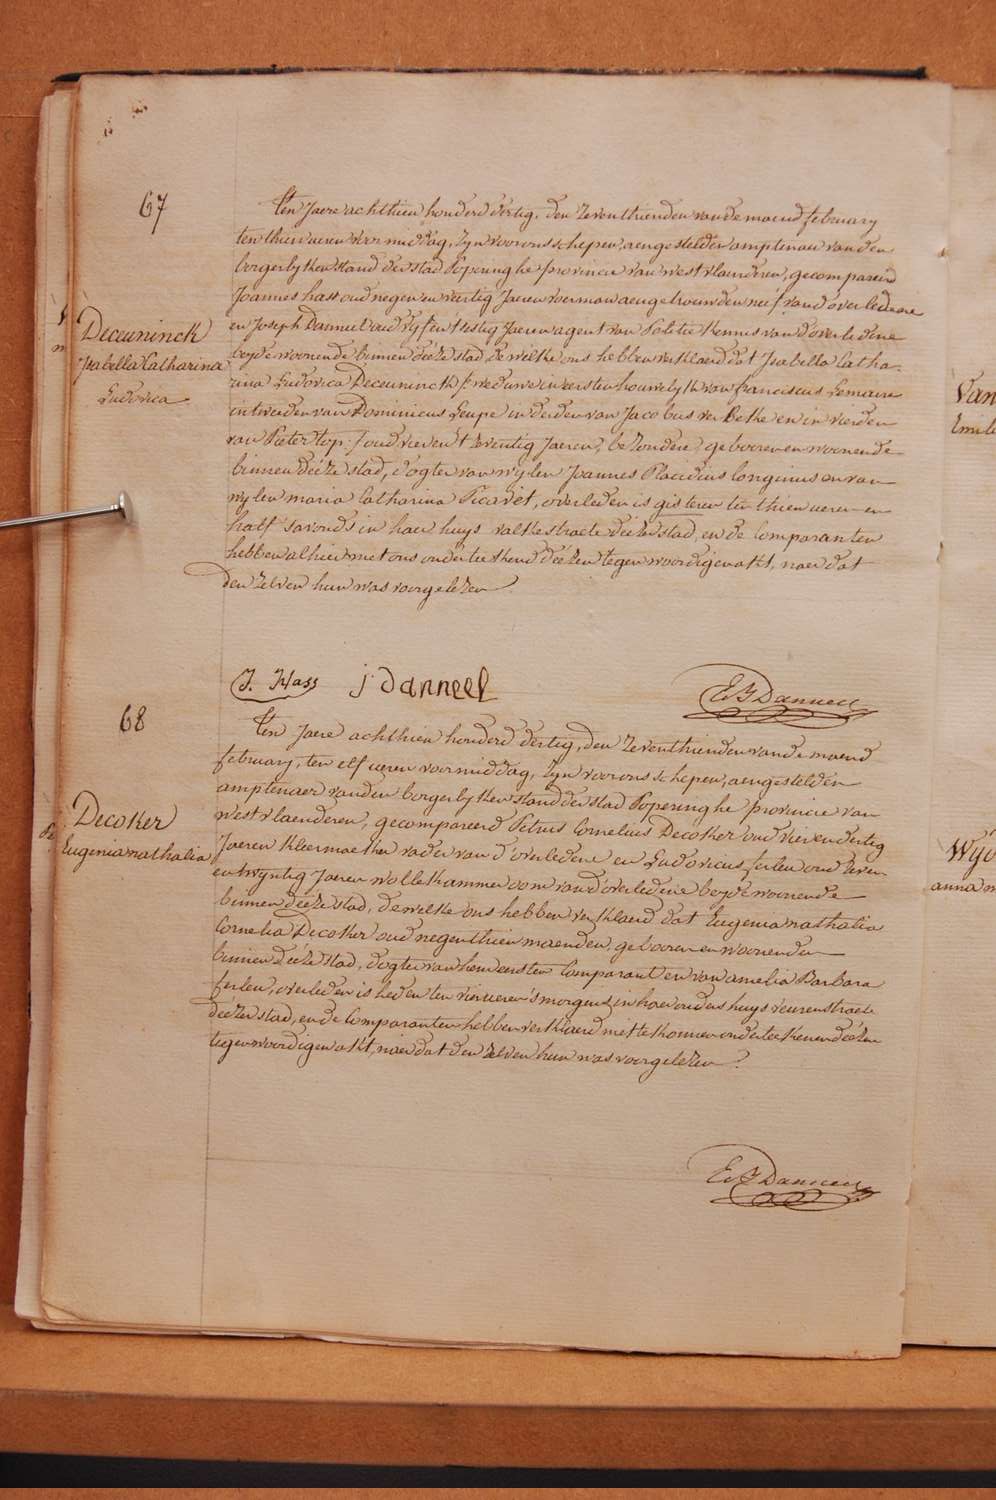 67
Ten Jaere achthien honderd dertig, den zeventhienden van de maend february
ten thien ueren voor middag, zyn voor ons schepen, aengestelden amptenaer van den
borgerlyken stand der stad Poperinghe provincie van westvlaenderen, gecompareerd
Joannes hass oud negen en veertig Jaeren voerman aengetrouwden neef van d'overledene
en Joseph Danneel oud vyf en t'sestig Jaeren agent van Politie kennis van d'overledene
beyde woonende binnen déeze stad, de welke ons hebben verklaerd dat Isabella Catha-
rina Ludovica Deceuninck /: weduwe in eersten houwelyk van franciscus Lemaire
in tweeden van Dominicus Leupe in derden van Jacobus verbeke en in vierden
van Pieter top :/ oud vier en t'zeventig Jaeren, bezondere, gebooren en woonende
binnen déeze stad, dogter van wylen Joannes Placidius longinus en van
wylen maria Catharina Picavet, overleden is gisteren ten thien ueren en
half s'avonds in haer huys valkestraete déezer stad, en de Comparanten
hebben alhier met ons onderteekend déezen tegenwoordigen akt, naer dat
den zelven hun was voorgelezen
Deceuninck
Isabella Catharina
Ludovica
J. Hass j Danneel
68
Ten Jaere achthien honderd dertig, den zeventhienden van de maend
february, ten elf ueren voormiddag, zyn voor ons schepen, aengestelden
amptenaer van den borgerlyken stand der stad Poperinghe provincie van
westvlaenderen, gecompareerd Petrus Cornelius Decoker oud vier en dertig
Jaeren kleermaeker vader van d'overledene en Ludovicus ferlen oud zeven
en twyntig Jaeren wollekammer oom van d'overledene beyde woonende
binnen déeze stad, de welke ons hebben verklaerd dat Eugenia nathalia
Cornelia Decoker oud negenthien maenden, gebooren en woonende
binnen déeze stad, dogter van hem eersten Comparant en van amelia Barbara
ferlen, overleden is heden ten vier ueren s'morgens in haer ouders huys veurenstraete
déezer stad, en de Comparanten hebben verklaerd niet te konnen onderteekenen déezen
tegenwoordigen akt, naer dat den zelven hun was voorgelezen
Decoker
Eugenia nathalia